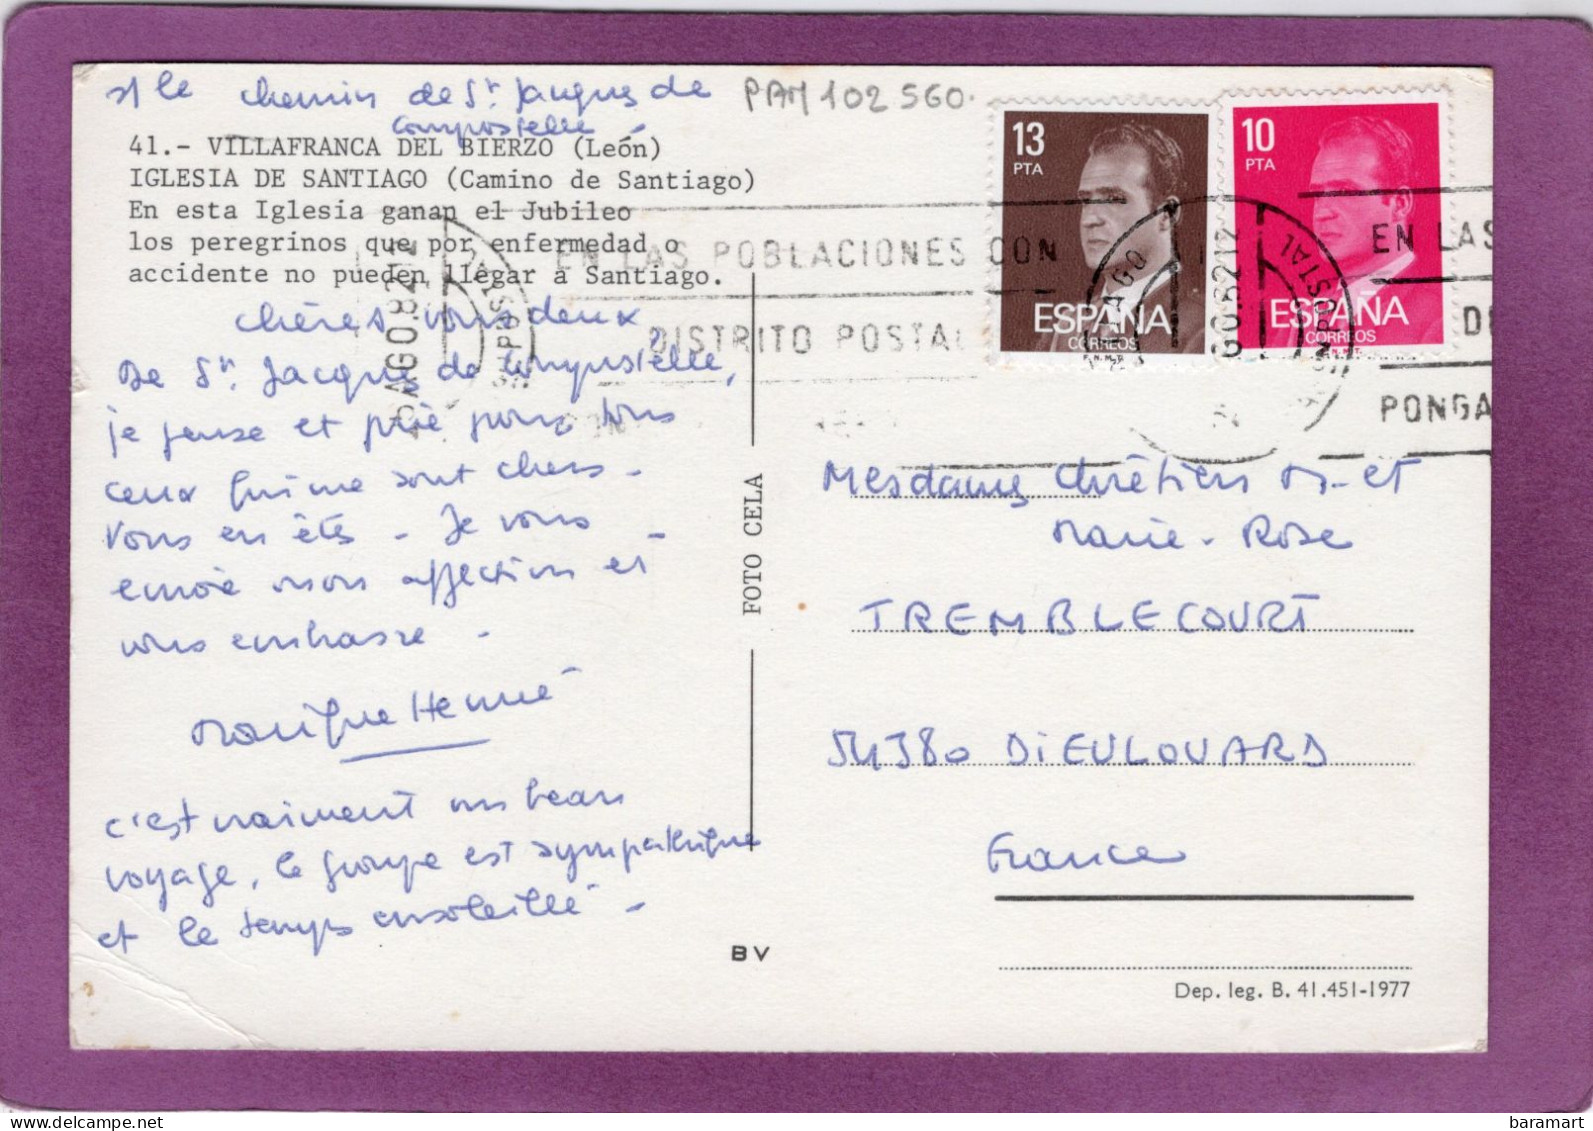 s/ le chemin de St Jacques de
compostelle -
PAM 102 560.
41.- VILLAFRANCA DEL BIERZO (León)
IGLESIA DE SANTIAGO (Camino de Santiago)
En esta Iglesia ganan el Jubileo
los peregrinos que por enfermedad o
accidente no pueden llegar a Santiago.
chères vous deux
De St. Jacques de Compostelle,
je pense et prie pour tous
ceux qui me sont chers -
Vous en êtes - Je vous
envoie mon affection et
vous embrasse -
c'est vraiment un beau
voyage, le groupe est sympathique
et le temps ensoleillé -
FOTO CELA
BV
13
PTA
ESPAÑA
CORREOS
F.N.M.T.
10
PTA
ESPAÑA
CORREOS
F.N.M.T.
EN LAS POBLACIONES CON
DISTRITO POSTAL
AGO.82
POSTAL
EN LAS
PONGA
Mesdames Chrétien M- et
Marie-Rose
TREMBLECOURT
54380 DIEULOUARD
France
Dep. leg. B. 41.451-1977
baramart